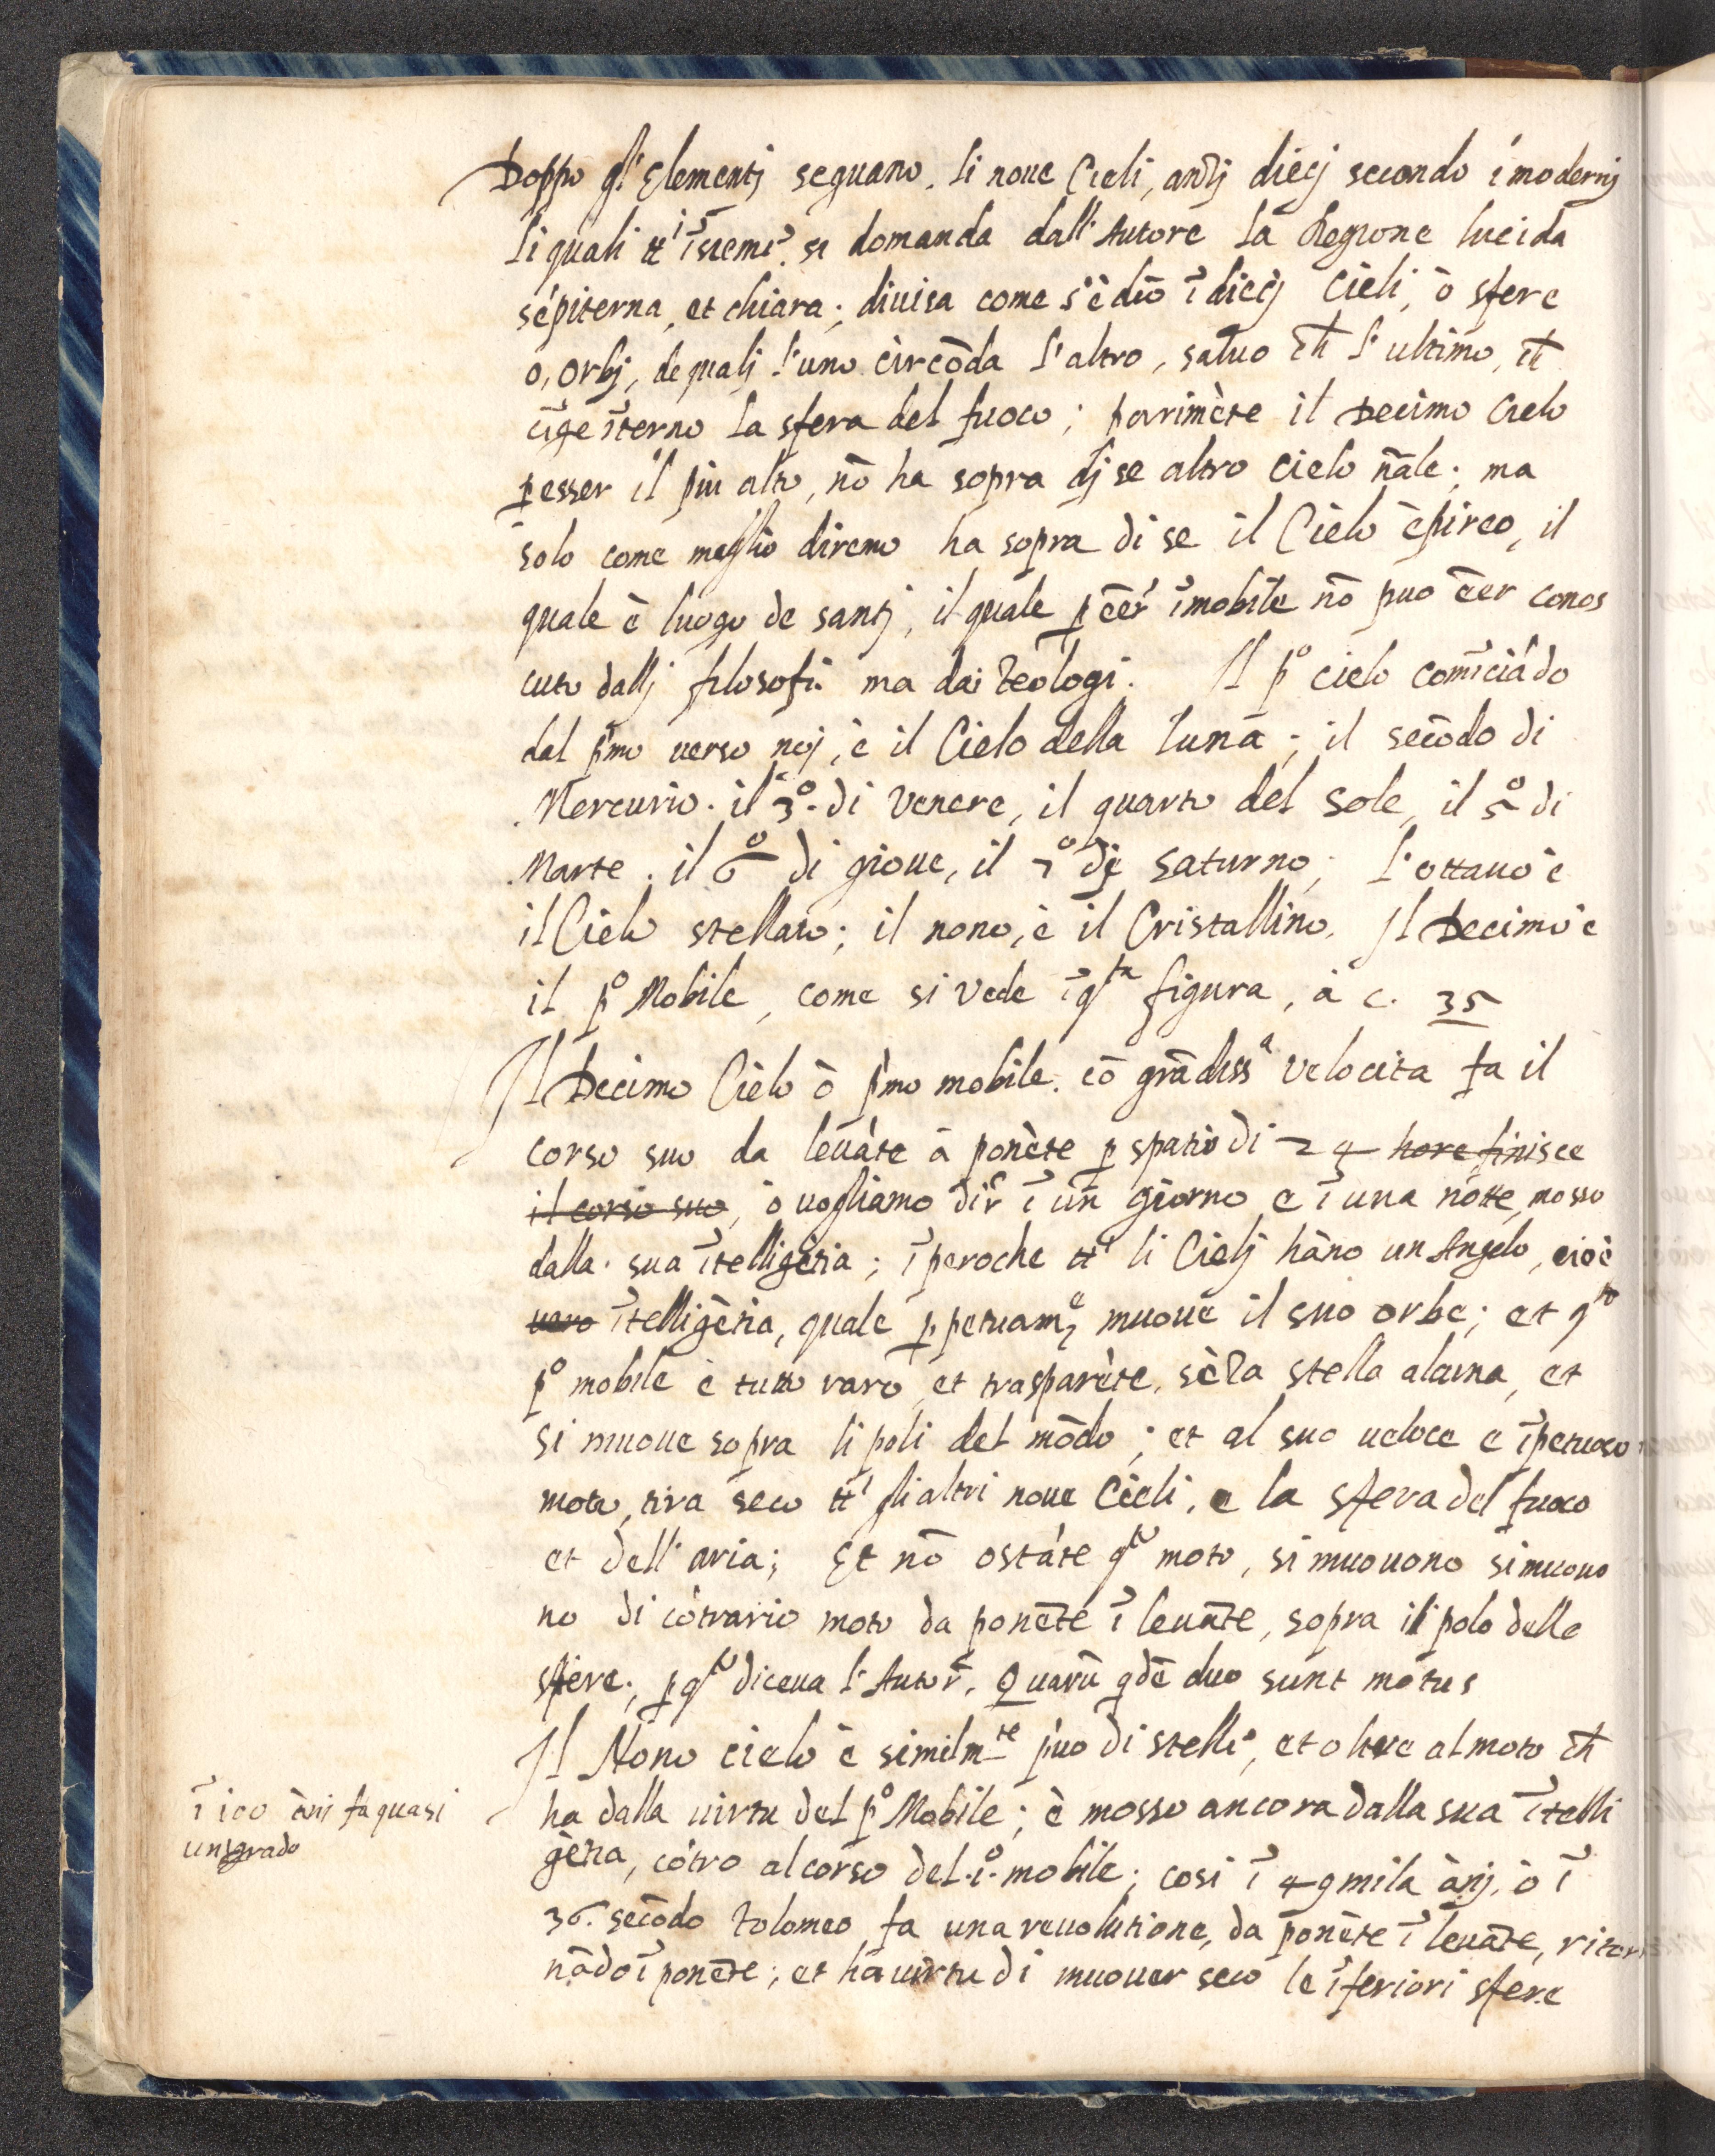 Doppo gl' Elementj seguano. li noue Cieli, anzj diecj secondo i modernj
li quali tt.i īsiemē. si domanda dall'Autore la Regione lucida
sēpiterna, et chiara; diuisa come s'è dtō ī diecj Cieli, ò sfere
o, orbj, de qualj l'uno circōda l'altro, saluo ch̄ l'ultimo, ch̄
cīge īterno la sfera del fuoco; parimēte il Decimo Cielo
p̱ esser il piu alto, nō ha sopra dj se altro cielo nāle; ma
solo come meglio diremo ha sopra di se il Cielo ēpireo, il
quale è luogo de santj, il quale p̱ ēēr īmobile nō puo ēēr conos
ciuto dallj filosofi ma dai Teologi. Il p.o cielo comīciādo
dal p̄mo uerso noj, è il Cielo della Luna; il secōdo di
Mercurio. il 3.o di Venere, il quarto del Sole, il 5.o di
Marte. il 6.o di gioue, il 7.o di Saturno; L'ottauo è
il Cielo stellato; il nono, è il Cristallino. Il Decimo è
il p.o Mobile, come si vede ī q.ta figura, à c. 35
Il Decimo Cielo ò p̄mo mobile. cō grādiss.a velocita fa il
corso suo da leuāte à ponēte p̱ spatio di 24 hore finisce
il corso suo, ò uogliamo dir̄ ī un giorno e ī una notte, mosso
dalla sua ītelligēzia; īperoche tt.i li Cielj hāno un Angelo, cioè
uero ītelligēzia, quale p̱petuam.e muoue il suo orbe; et q.to
p.o mobile è tutto raro, et trasparēte, sēza stella alcuna, et
si muoue sopra li poli del mōdo; et al suo ueloce e īpetuoso
moto, tira seco tt.i gli altri noue Cieli, e la sfera del fuoco
et dell'aria; Et nō ostāte q.to moto, si muouono si muouo
no di cōtrario moto da ponēte ī leuāte, sopra il polo delle
sfere; p̱ q.to diceua l'Autor̄. Quarū qdē duo sunt motus
Il Nono cielo è similm.te p'uo di stelle, et oltre al moto ch̄
ha dalla uirtu del p.o Mobile; è mosso ancora dalla sua ītelli
gēzia, cōtro al corso del .i.o mobile; cosi ī 49 mila ānj. ò ī
36. secōdo Tolomeo fa una reuolutione, da ponēte ī leuāte, ritor
nādo ī ponēte; et ha uirtu di muouer seco le īferiori sfere
ī 100 ānj fa quasi
un grado